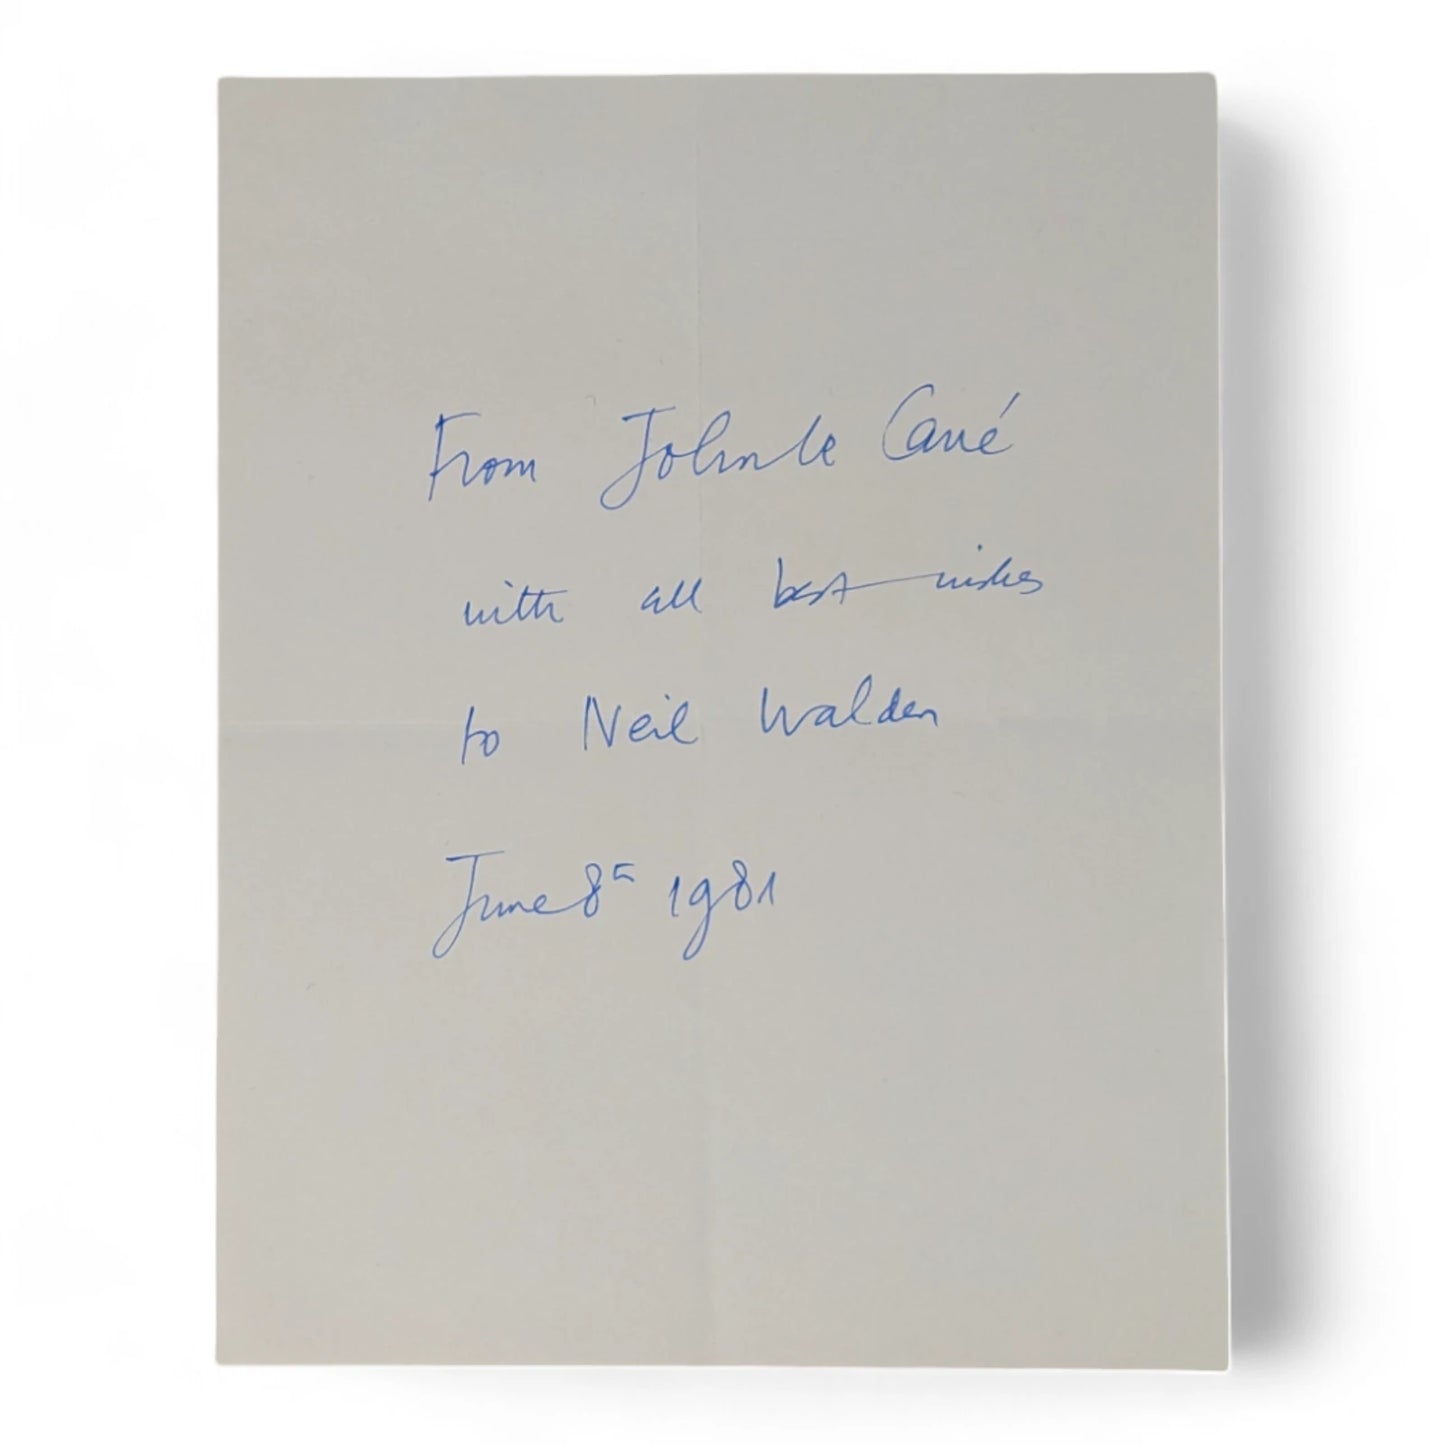 From John le Carré
with all best wishes
to Neil Walden
June 8th 1981